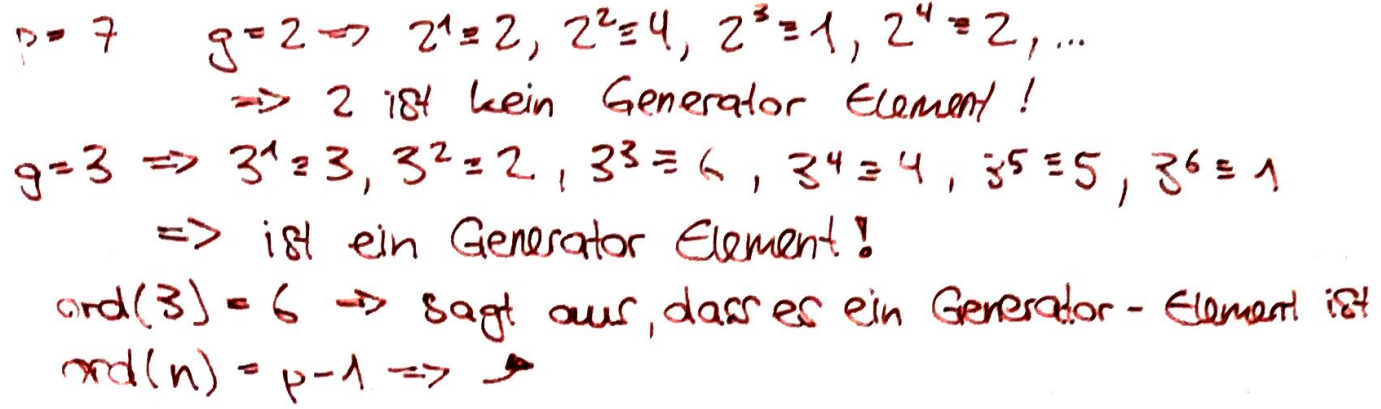 p = 7 g=2 => 2¹≡2, 2²≡4, 2³≡1, 2⁴≡2, ...
=> 2 ist kein Generator Element!
g=3 => 3¹≡3, 3²≡2, 3³≡6, 3⁴≡4, 3⁵≡5, 3⁶≡1
=> ist ein Generator Element!
ord(3) = 6 => sagt aus, dass es ein Generator-Element ist
ord(n) = p-1 => ↗